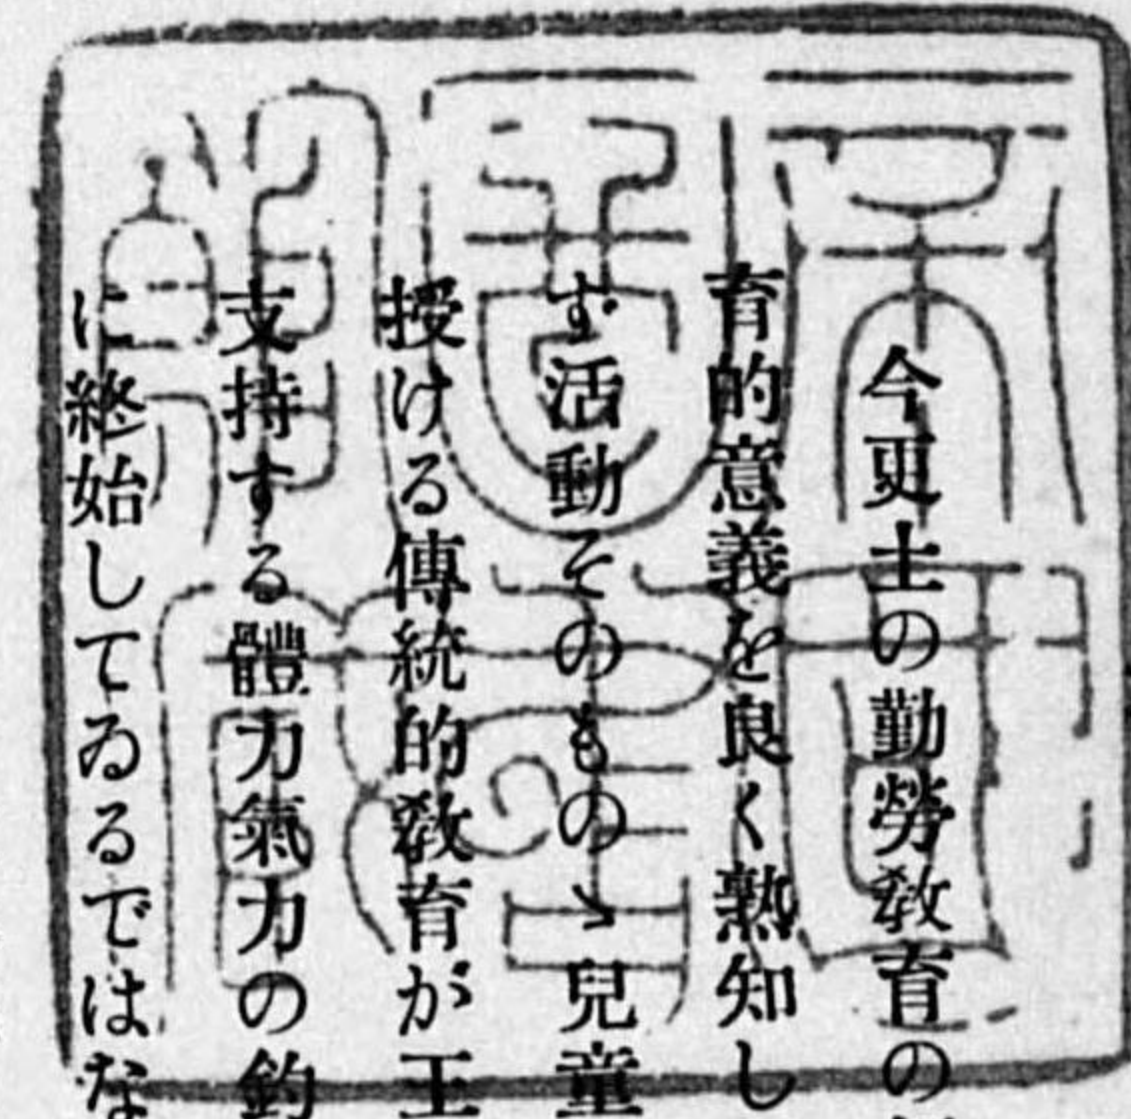 今更土の勤勞教育の
育的意義を良く熟知し
ず活動そのものゝ兒童
授ける傳統的教育が王
支持する體力氣力の釣
に終始してゐるではな